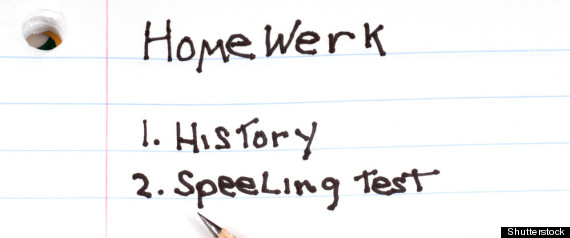 HomeWerk
1. History
2. Speeling Test
Shutterstock